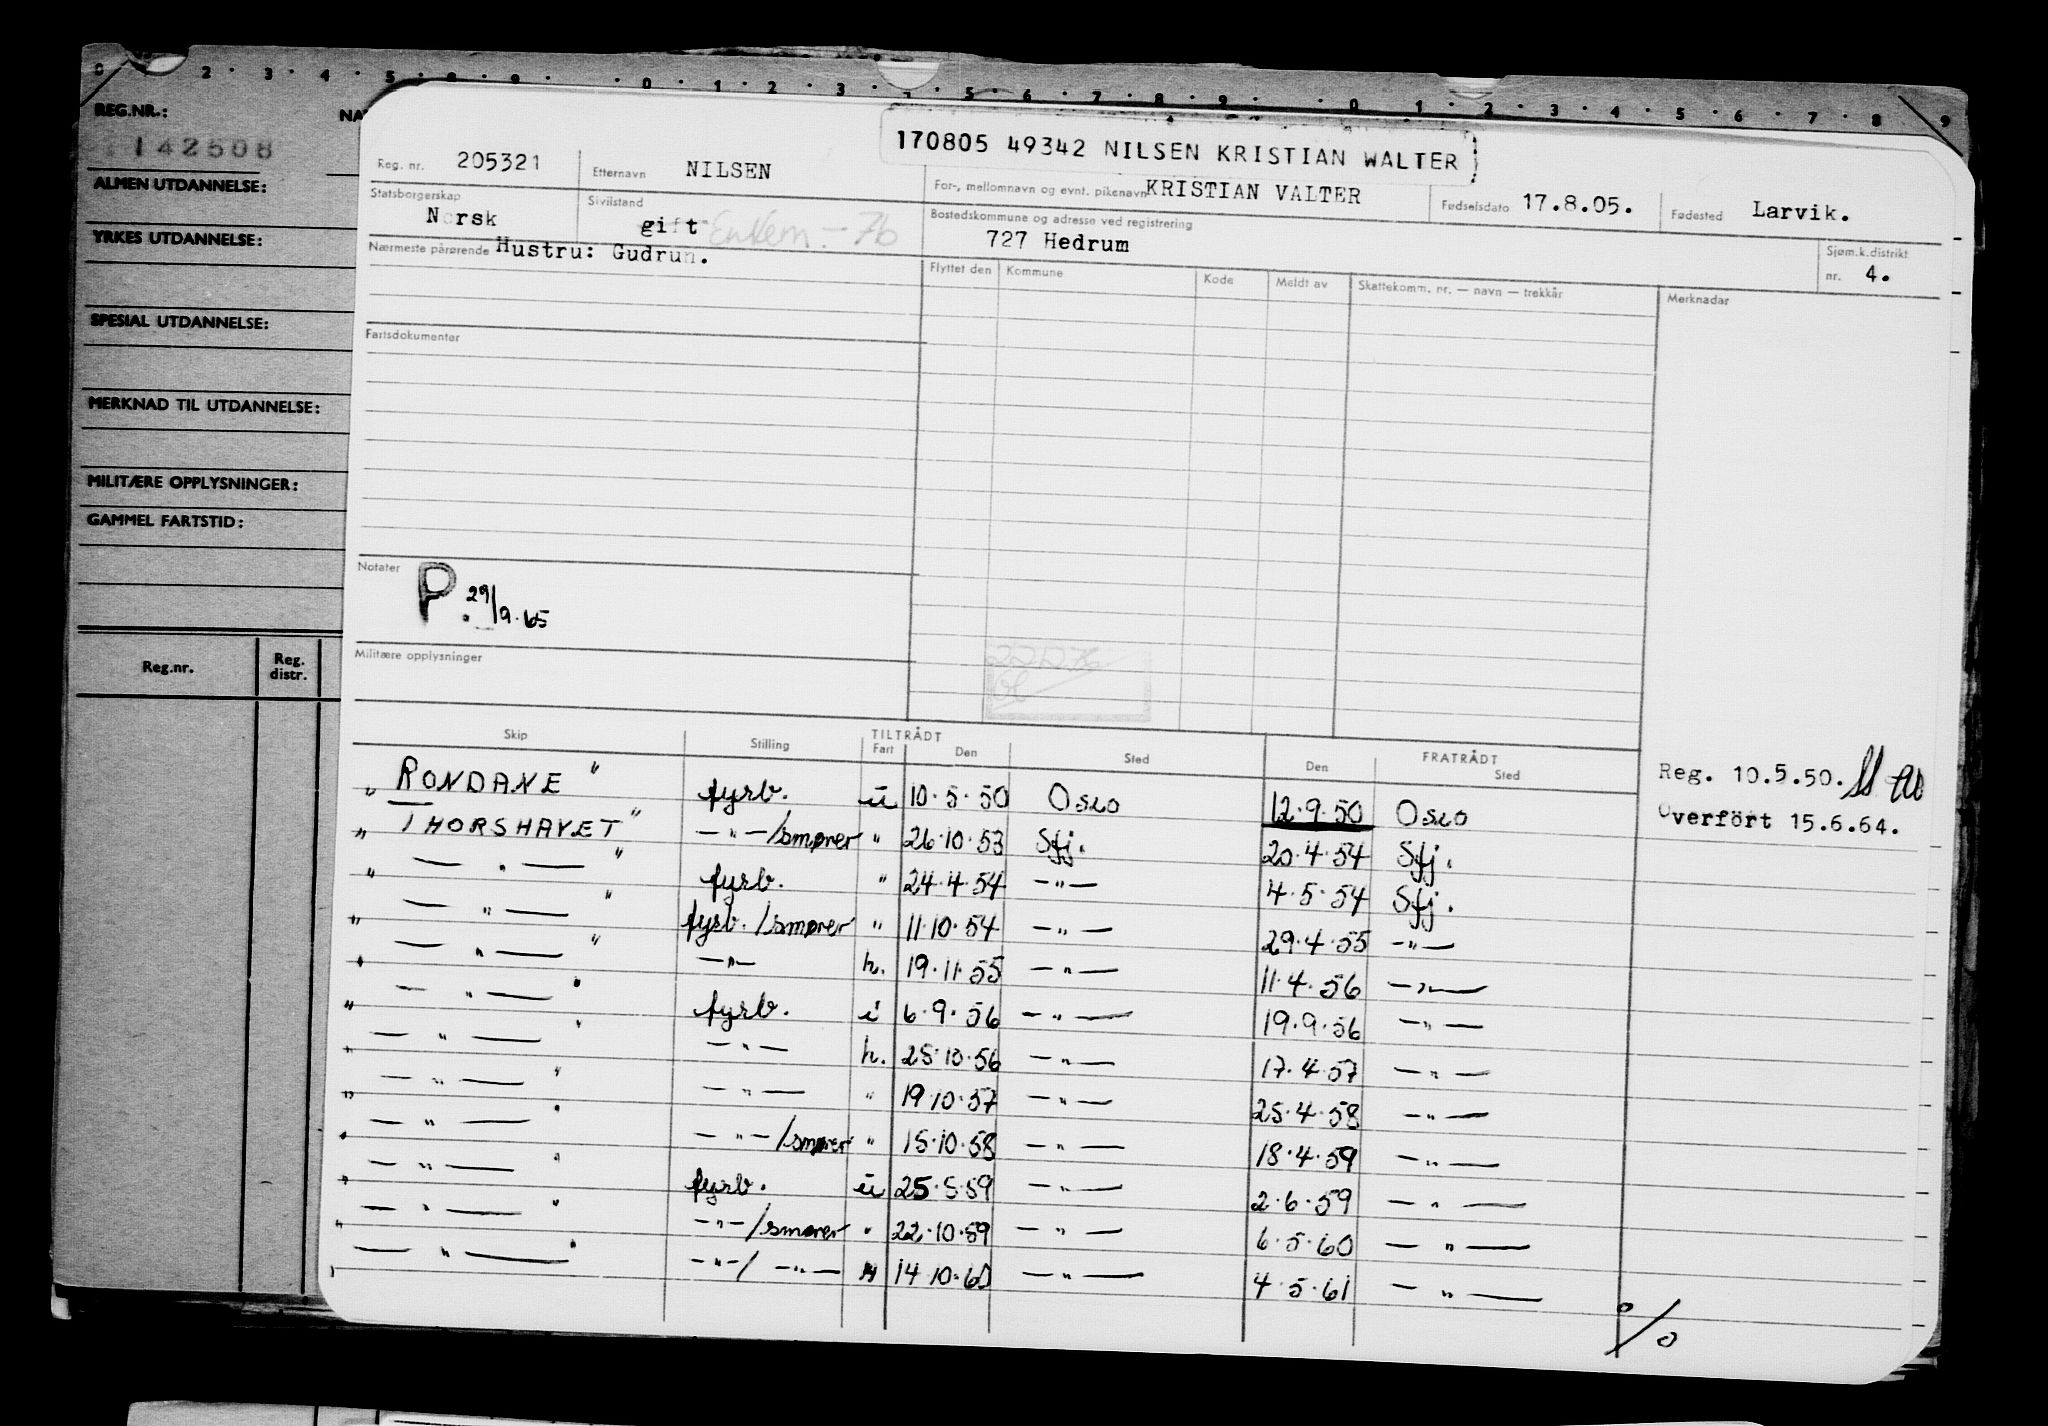 0 2 3 4 5 8 9 0 1 2 3 4 5 6 7 8 9 0 1 2 3 4 5 6 7 8 9
REG.NR.: NA
142508
ALMEN UTDANNELSE:
YRKES UTDANNELSE:
SPESIAL UTDANNELSE:
MERKNAD TIL UTDANNELSE:
MILITÆRE OPPLYSNINGER:
GAMMEL FARTSTID:
Reg.nr. Reg. distr.
170805 49342 NILSEN KRISTIAN WALTER
Reg. nr. 205321 Etternavn NILSEN For-, mellomnavn og evnt. pikenavn KRISTIAN VALTER Fødselsdato 17.8.05. Fødested Larvik.
Statsborgerskap Norsk Sivilstand gift Enkem. - 76 Bostedskommune og adresse ved registrering 727 Hedrum Sjøm.k.distrikt nr. 4.
Nærmeste pårørende Hustru: Gudrun. Flyttet den Kommune Kode Meldt av Skattekomm. nr. — navn — trekkår Merknadar
Fartsdokumenter
Notater P. 29/9.65
Militære opplysninger
Skip Stilling TILTRÅDT Fart Den Sted Den FRATRÅDT Sted
" RONDANE " fyrb. u 10.5.50 Oslo 12.9.50 Oslo
Reg. 10.5.50.
" THORSHAVET " —"—/smører " 26.10.53 Sfj. 20.4.54 Sfj.
Overfört 15.6.64.
" —"— " fyrb. " 24.4.54 —"— 4.5.54 Sfj.
" —"— " fyrb./smører " 11.10.54 —"— 29.4.55 —"—
" —"— " —"— h. 19.11.55 —"— 11.4.56 —"—
" —"— " fyrb. i 6.9.56 —"— 19.9.56 —"—
" —"— " —"— h. 25.10.56 —"— 17.4.57 —"—
" —"— " —"— " 19.10.57 —"— 25.4.58 —"—
" —"— " —"—/smører " 15.10.58 —"— 18.4.59 —"—
" —"— " fyrb. u 25.5.59 —"— 2.6.59 —"—
" —"— " —"—/smører " 22.10.59 —"— 6.5.60 —"—
" —"— " —"—/—"— " 14.10.60 —"— 4.5.61 —"—
o/o